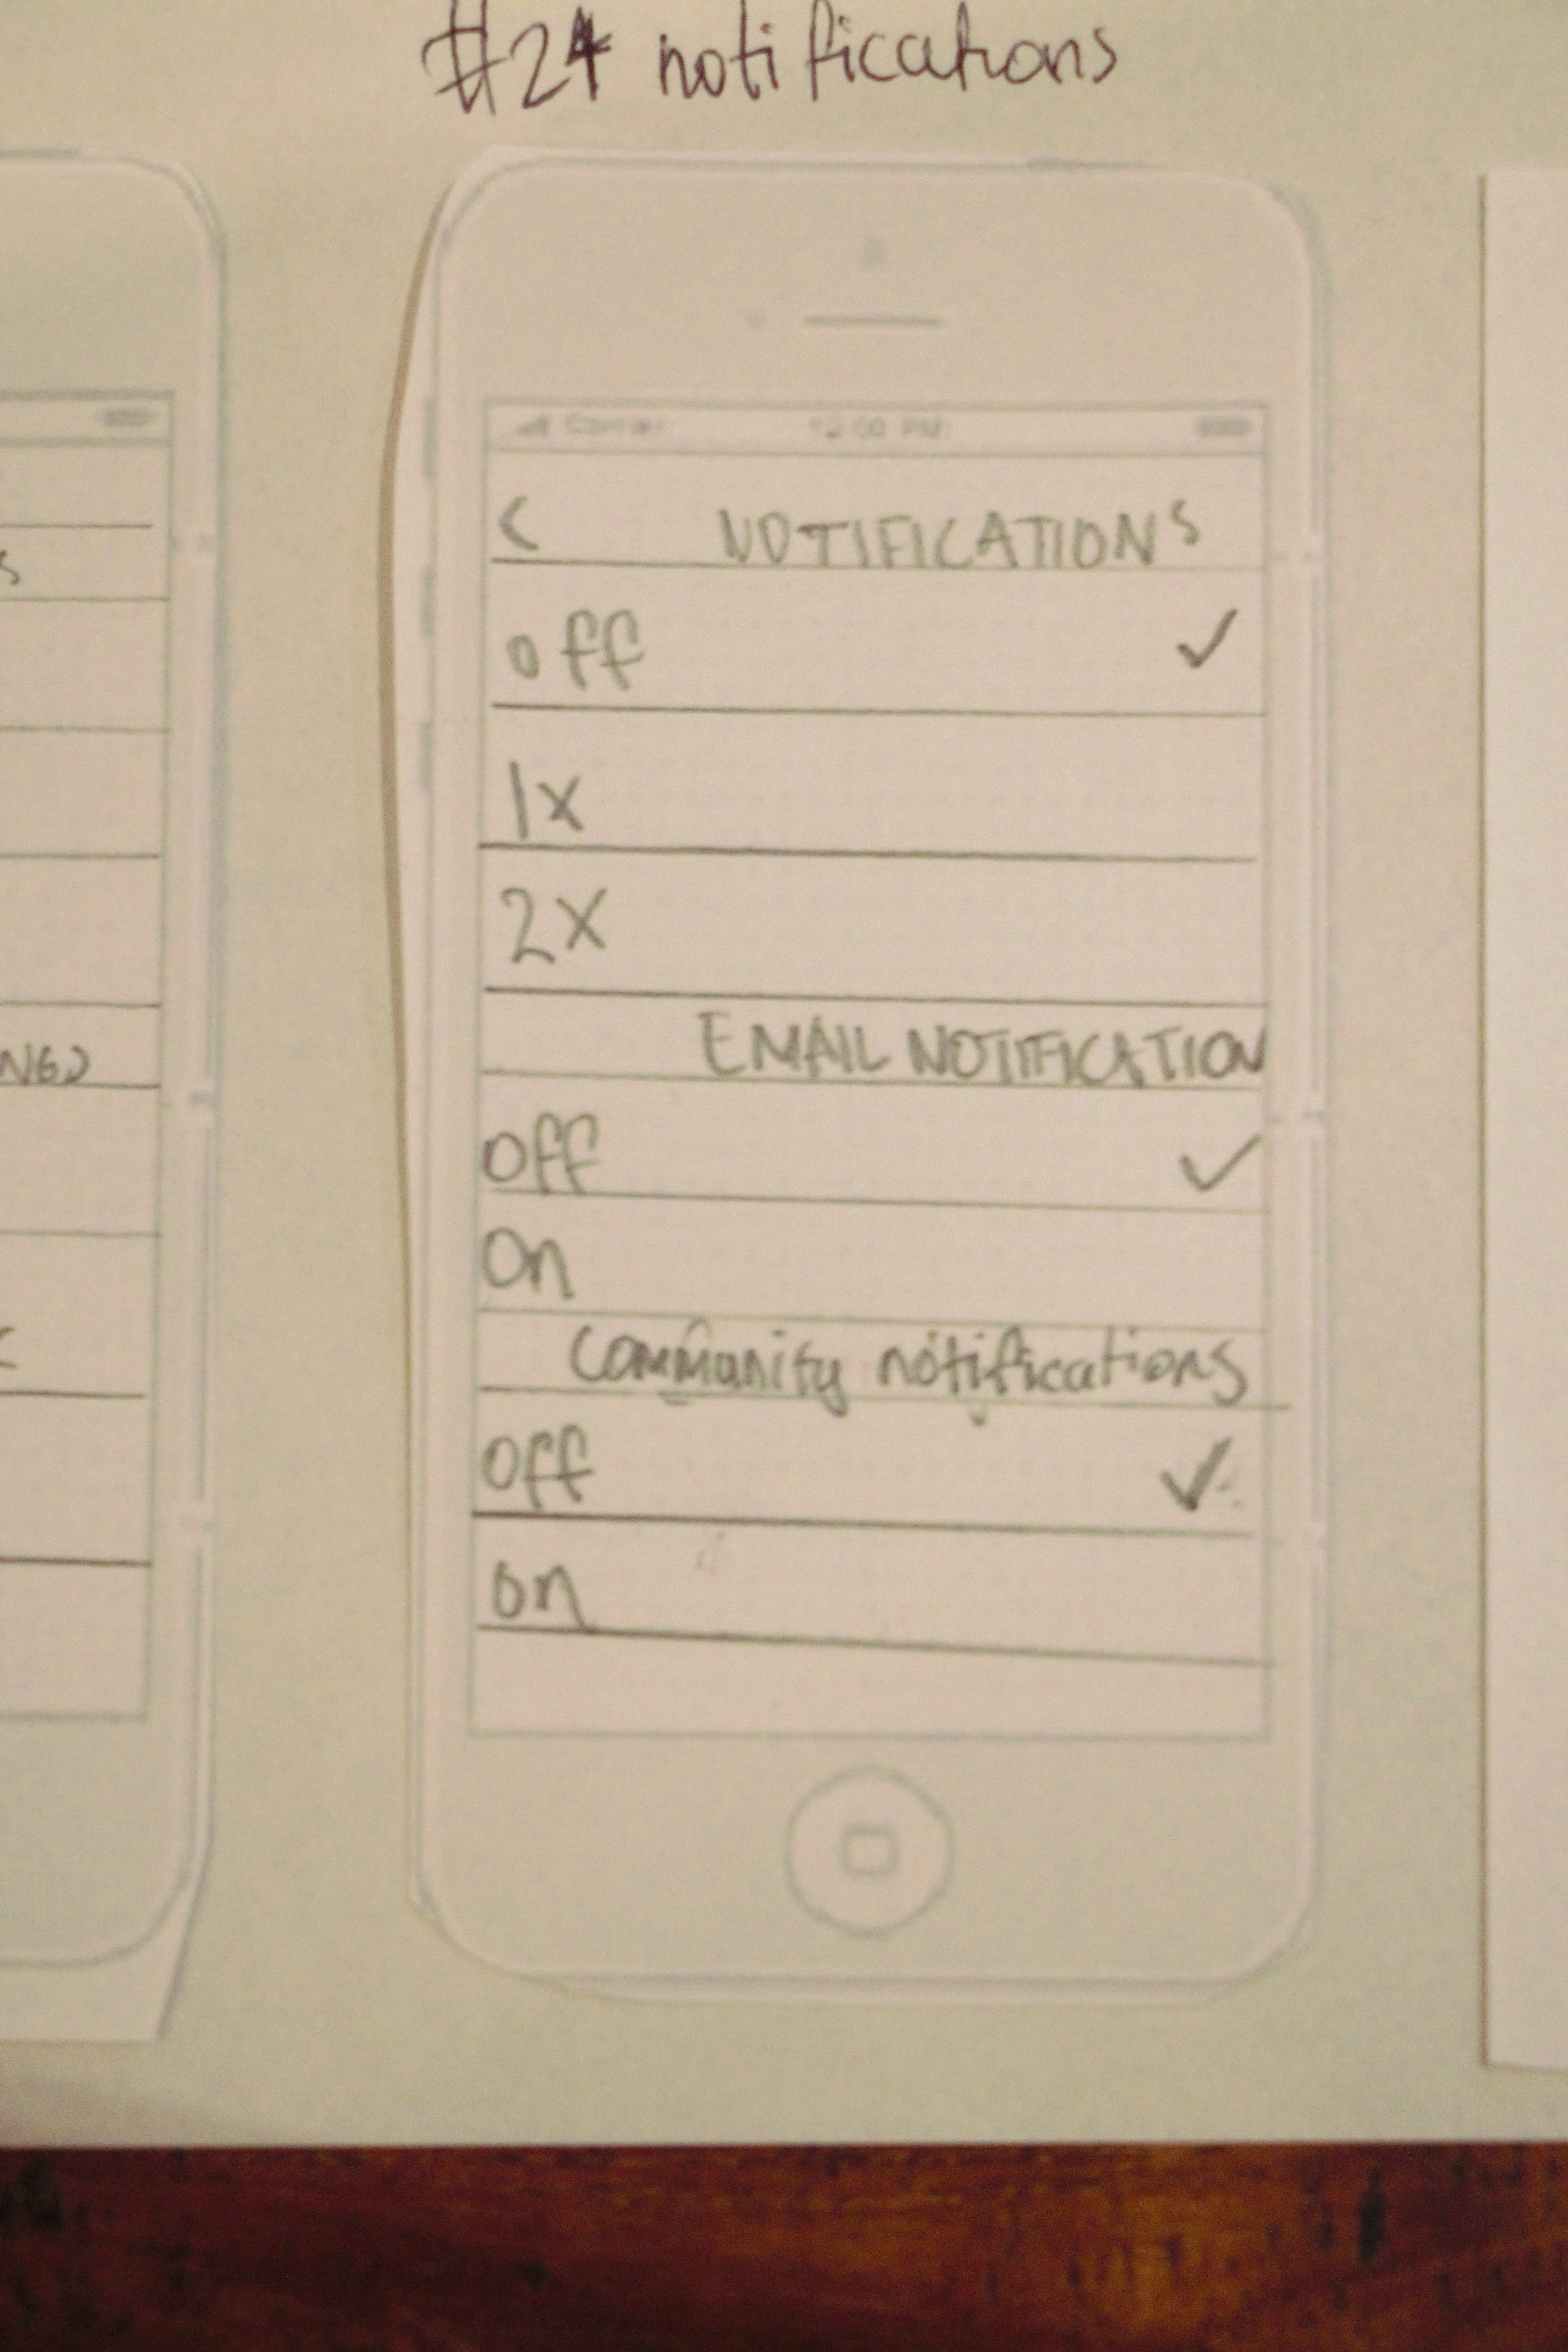 #24 notifications
Carrier 12:00 PM
< NOTIFICATIONS
off ✓
1x
2x
EMAIL NOTIFICATION
Off ✓
On
Community notifications
Off ✓
on